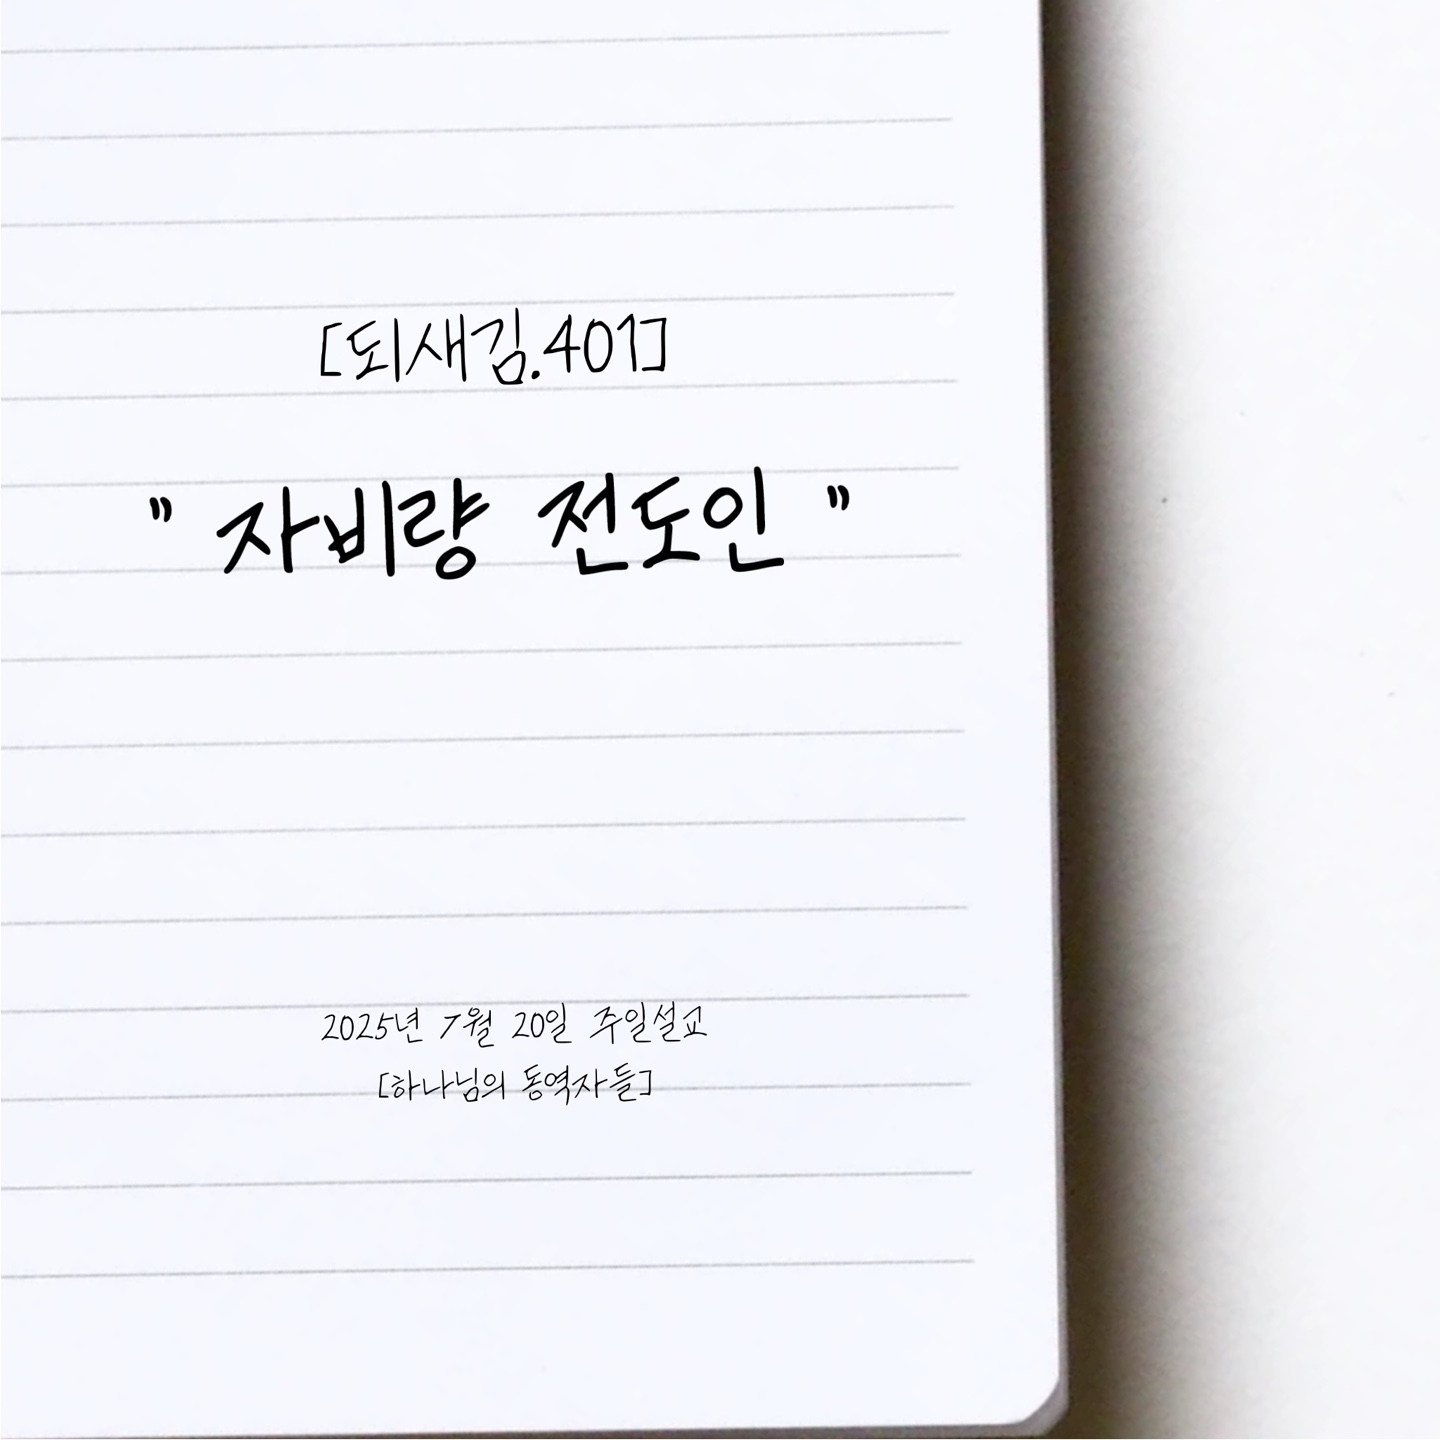 [되새김.401]
" 자비량 전도인 "
2025년 7월 20일 주일설교
[하나님의 동역자들]